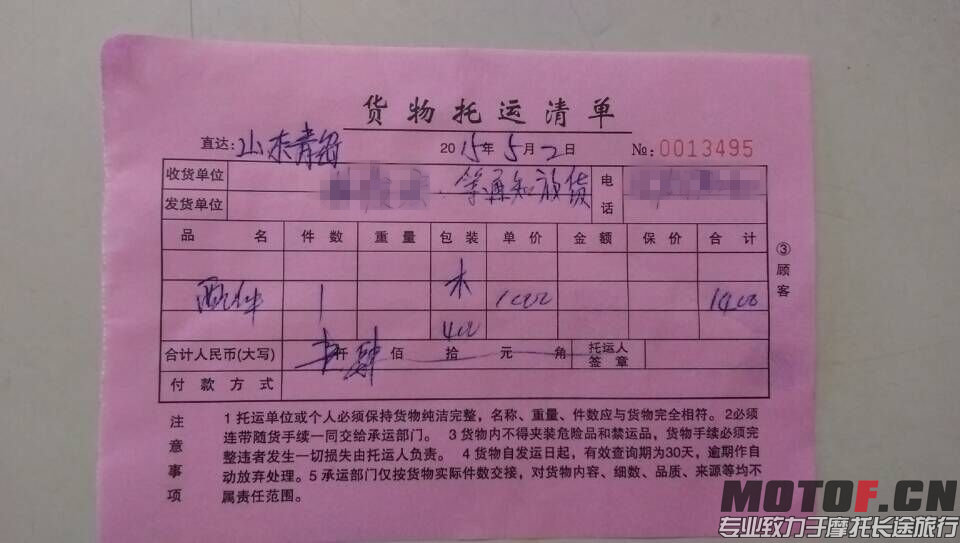 货物托运清单
直达：山东青岛 2015年5月2日 №:0013495
收货单位 等通知放货 电话
发货单位
品名 件数 重量 包装 单价 金额 保价 合计
木
配件 1 1000 1400
400
合计人民币(大写) 仟肆佰拾元角 托运人签章
付款方式
③顾客
注意事项
1 托运单位或个人必须保持货物纯洁完整，名称、重量、件数应与货物完全相符。2必须
连带随货手续一同交给承运部门。 3 货物内不得夹装危险品和禁运品，货物手续必须完
整违者发生一切损失由托运人负责。 4 货物自发运日起，有效查询期为30天，逾期作自
动放弃处理。5 承运部门仅按货物实际件数交接，对货物内容、细数、品质、来源等均不
属责任范围。
MOTOF.CN
专业致力于摩托长途旅行